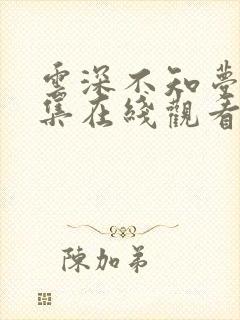 雲深不知夢
集在綫觀看
陳加弟